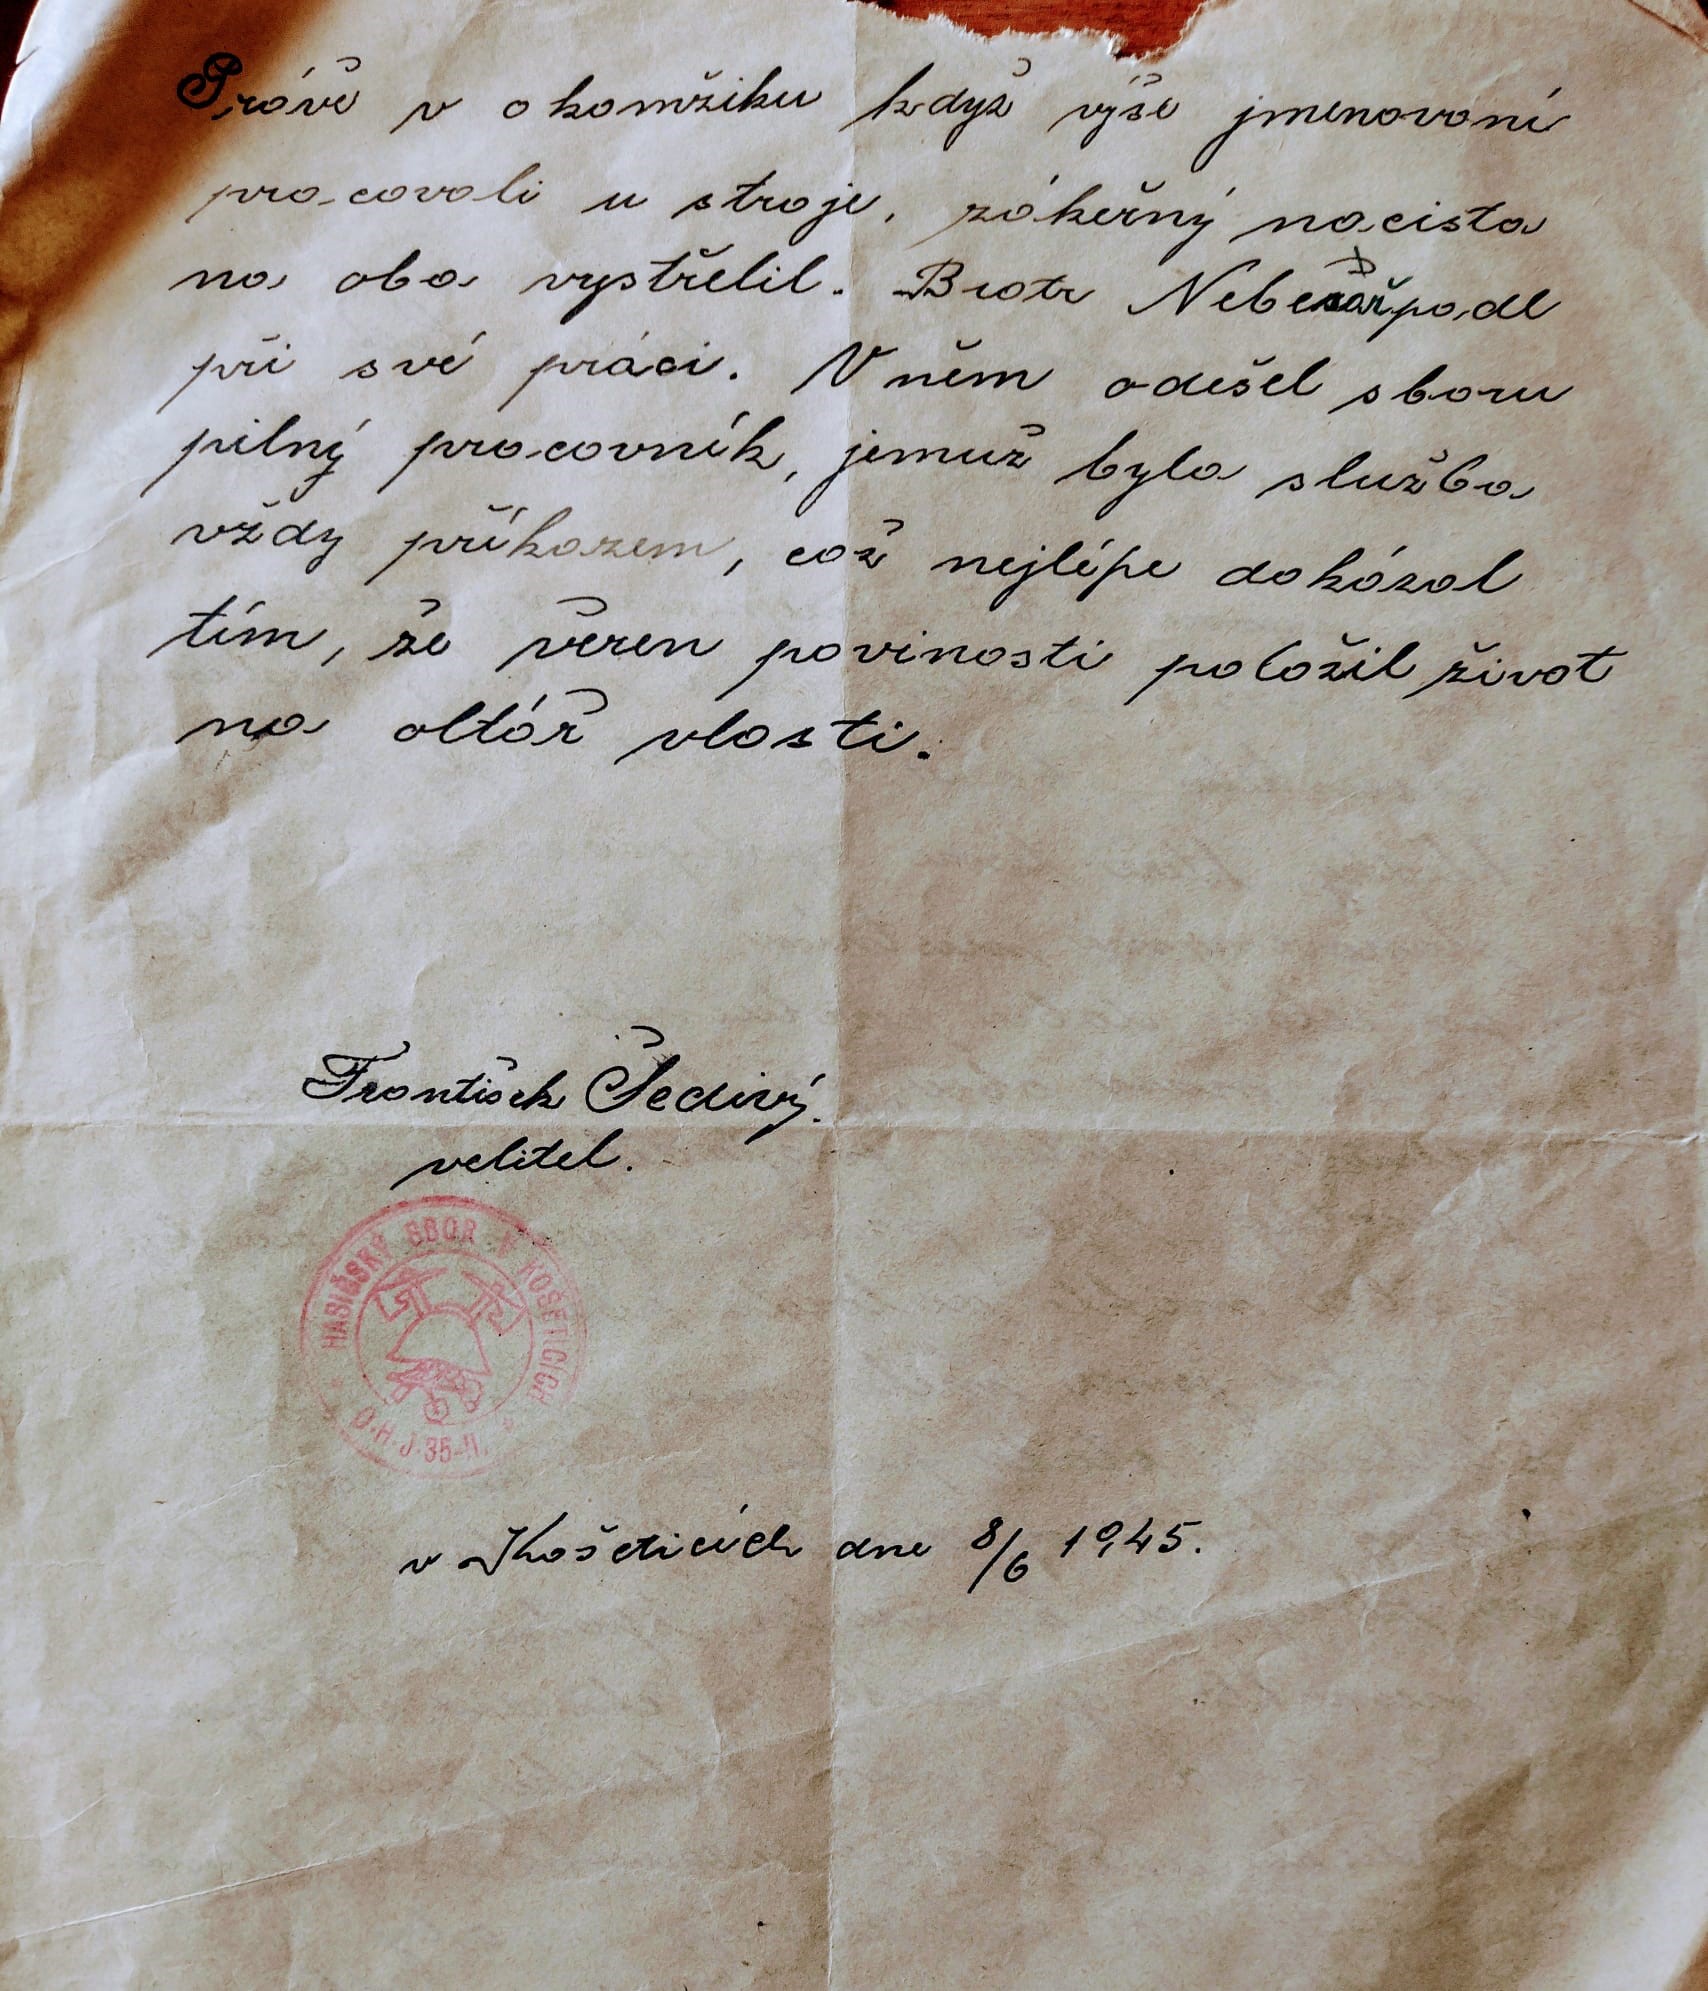 Právě v okamžiku když výše jmenovaní
pracovali u stroje, zákeřný nacista
na oba vystřelil. Bratr padl
při své práci. V něm odešel sboru
pilný pracovník, jemuž byla služba
vždy příkazem, což nejlépe dokázal
tím, že věren povinosti položil život
na oltář vlasti.
František Šedivý.
velitel.
HASIČSKÝ SBOR V KOŠETICÍCH
O.H.J. 35-II.
v Košeticích dne 8/6 1945.